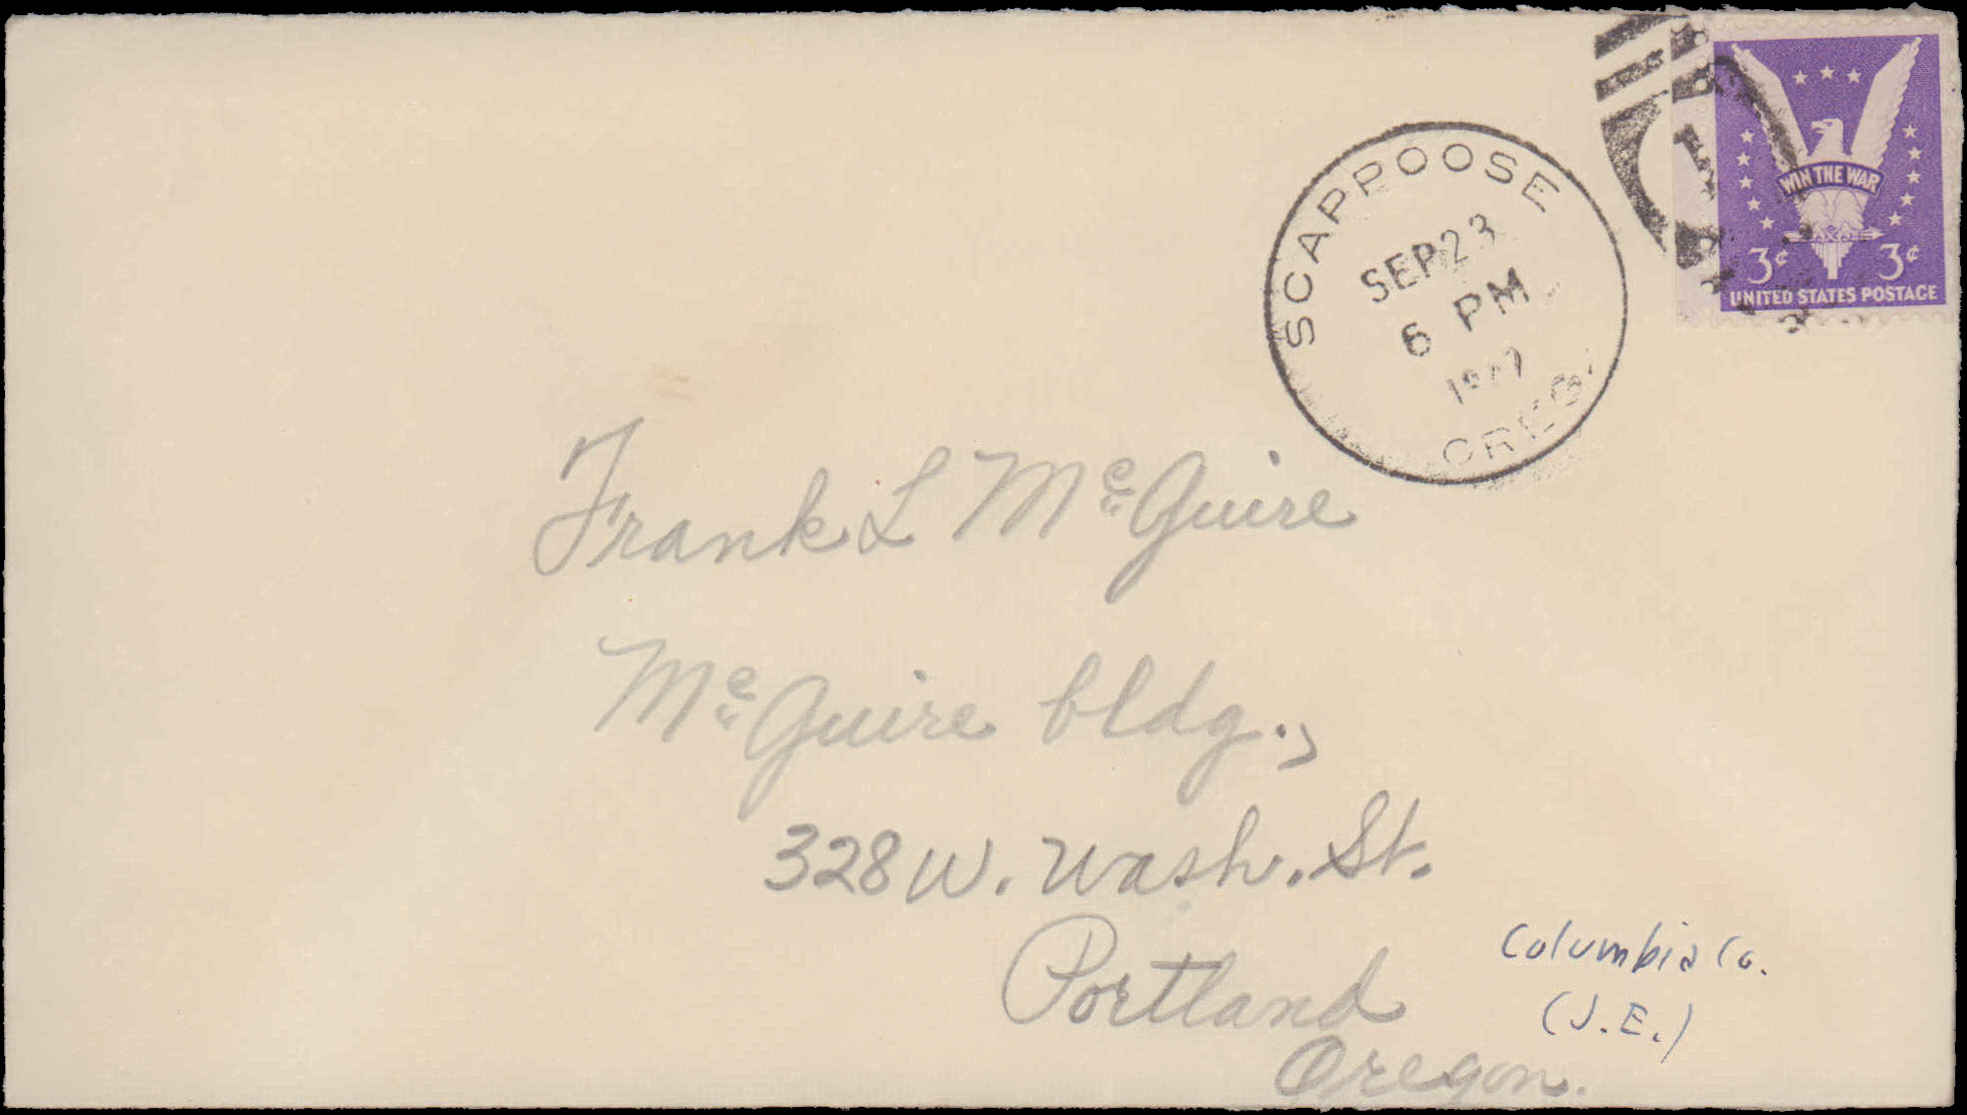 SCAPPOOSE
SEP 23
6 PM
OREG.
WIN THE WAR
3¢ 3¢
UNITED STATES POSTAGE
Frank L McGuire
McGuire bldg.,
328 W. Wash. St.
Portland
Oregon.
Columbia Co.
(J.E.)